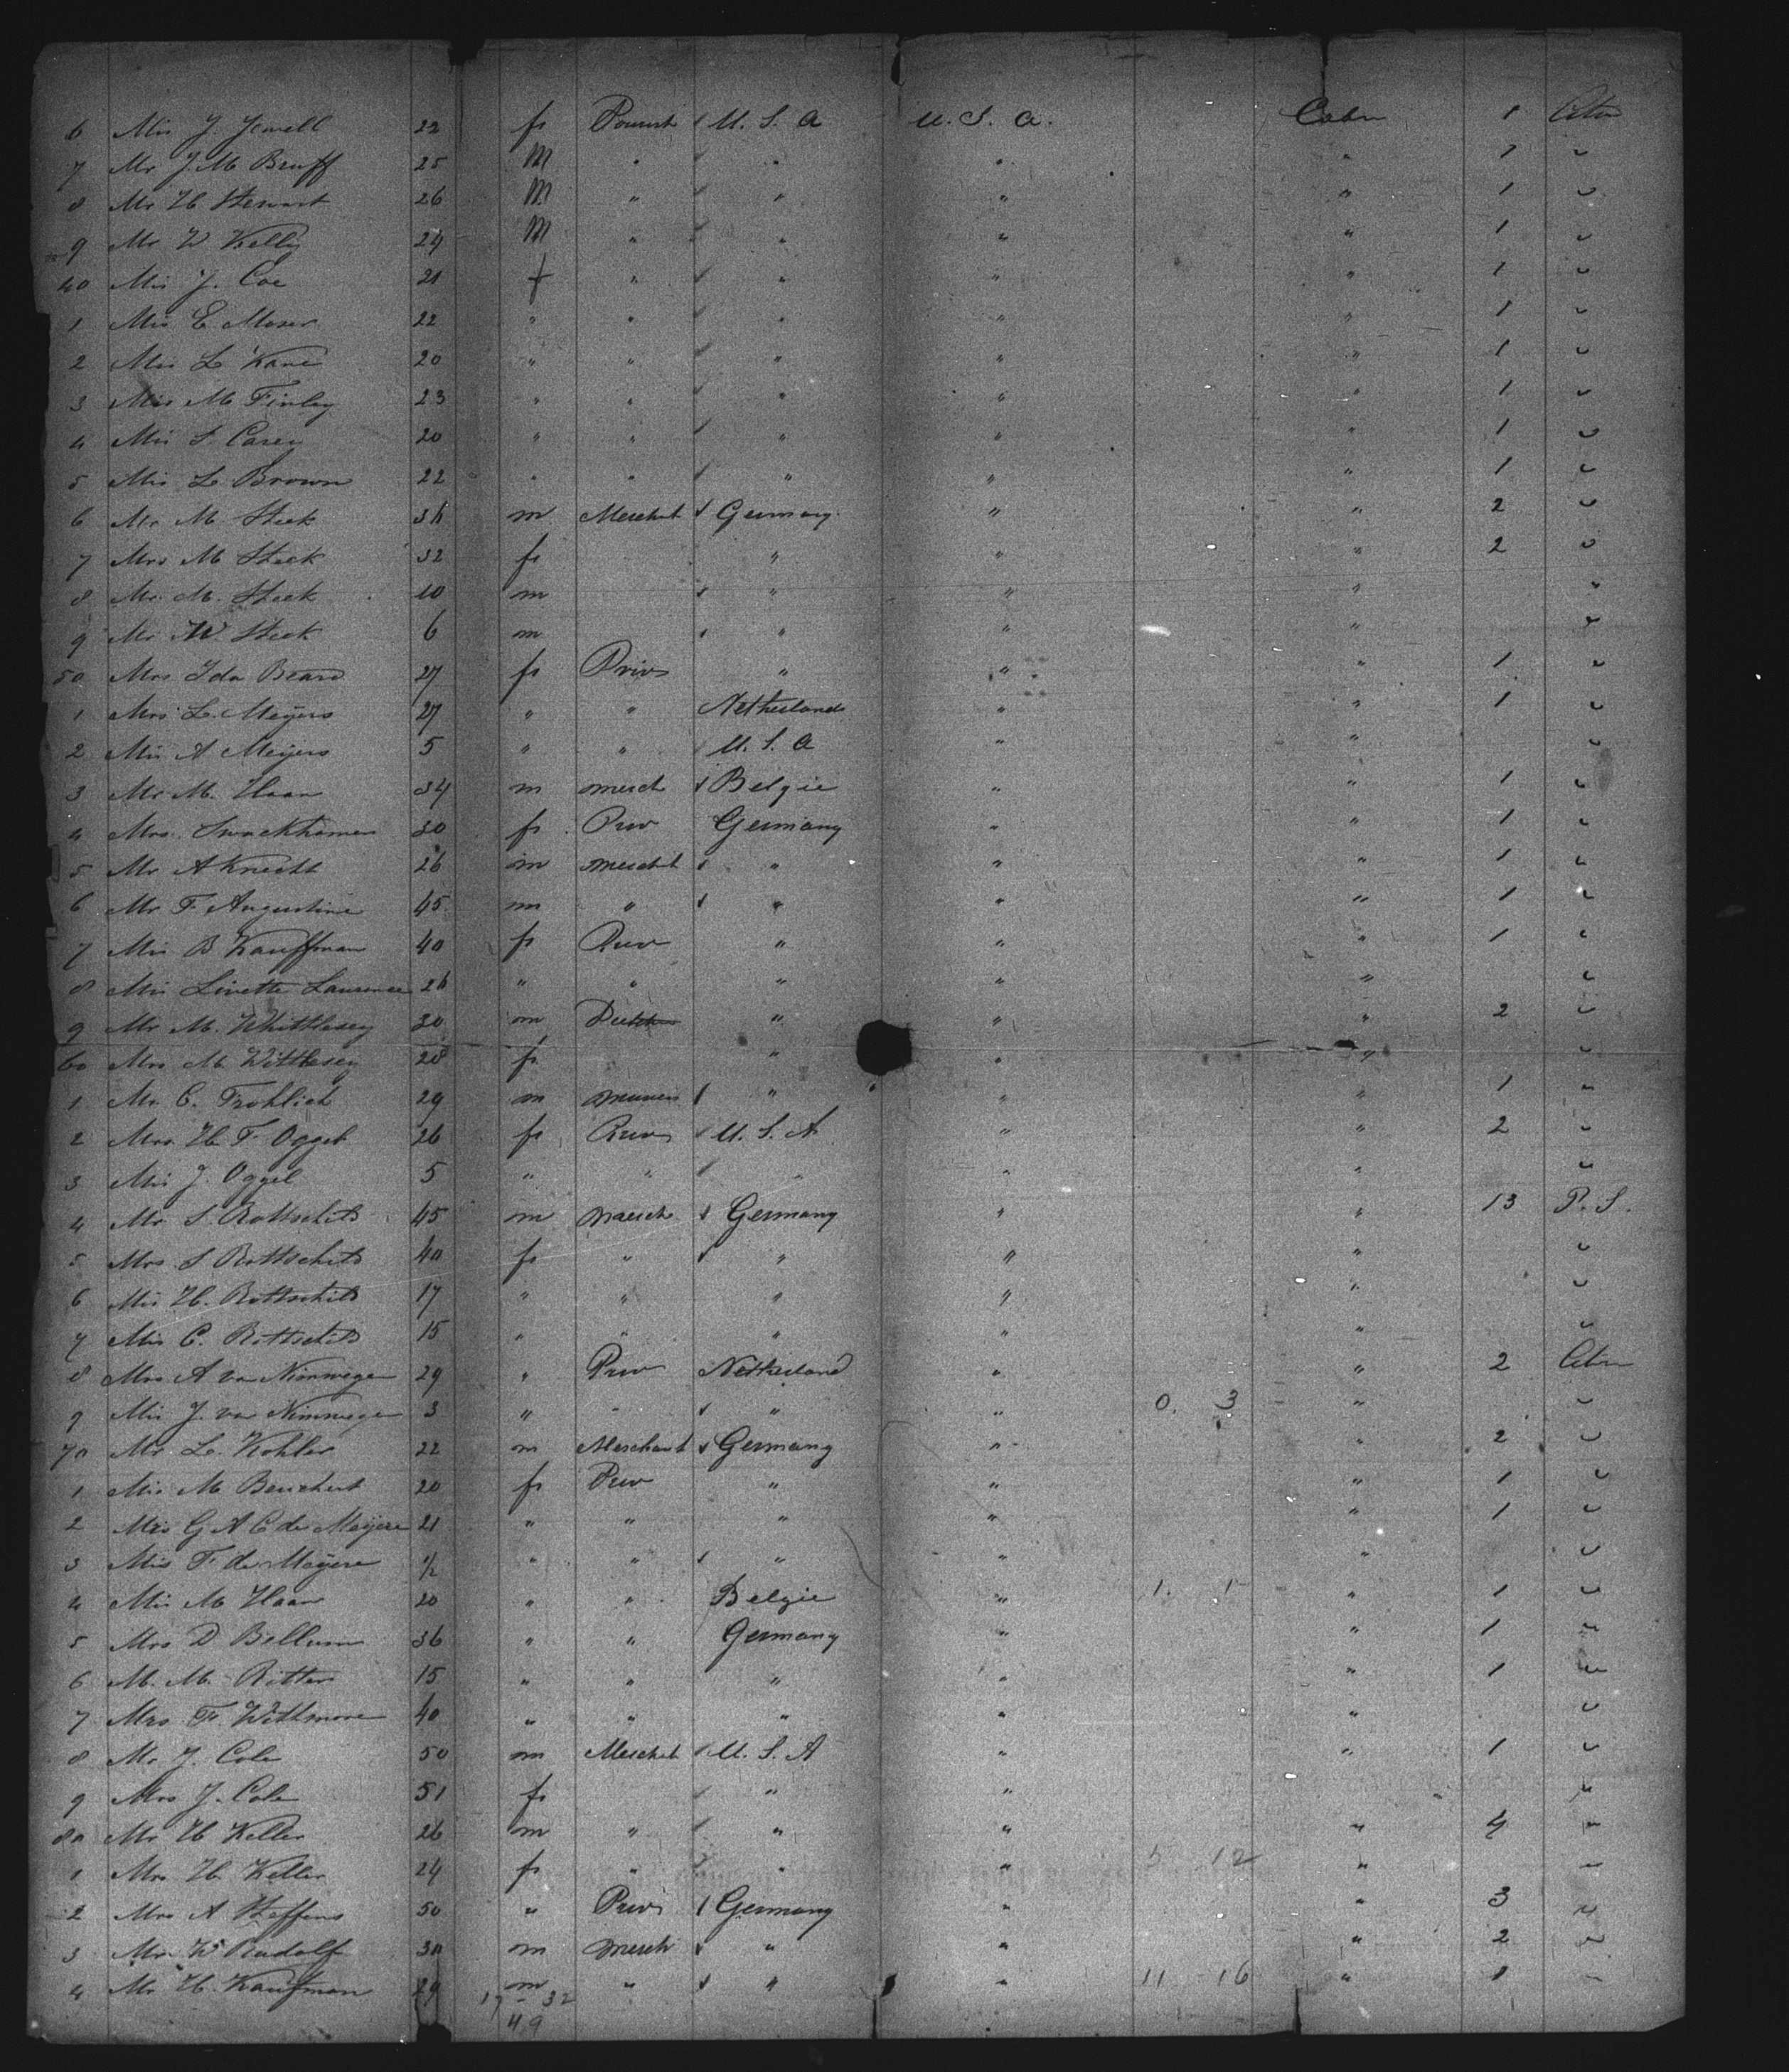 6 Mis J. Jewell 22 fr Tourist U. S. A U. S. A. Cabn 1
7 Mr J. M. Bruff 25 M " " " " 1 "
8 Mr H Stewart 26 M " " " " 1 "
9 Mr W Kelly 24 M " " " " 1 "
40 Mis J. Coe 21 f " " " " 1 "
1 Mis E Moser 22 " " " " " 1 "
2 Mis L Kane 20 " " " " " 1 "
3 Mis M Finley 23 " " " " " 1 "
4 Mis S. Carey 20 " " " " " 1 "
5 Mis L Brown 22 " " " " " 1 "
6 Mr M Steek m Mercht Germany " " 2 "
7 Mrs M Steek 32 fr " " " 2 "
8 Mr. M. Steek 10 m " " " "
9 Mr W. Steek 6 m " " " "
50 Mrs Ida Beard 27 fr Priv " " " 1 "
1 Mrs L. Meyers 27 " " Netherland " " 1 "
2 Mis A Meyers 5 " " U. S. A " " "
3 Mr M. Haan 34 m merch Belgie " " 1 "
4 Mrs. Swackhamer 30 fr Priv Germany " " 1 "
5 Mr A Knecht 26 m mercht " " " 1 "
6 Mr F Augustine 45 m " " " " 1 "
7 Mis B Kauffman 40 fr Priv " " " 1 "
8 Mis Livette Laurence " " " " " "
9 Mr M. Whittlesey 30 m " " " 2 "
60 Mrs M Wittlesey 28 fr " " " "
1 Mr C. Frohlich 29 m " " " 1 "
2 Mrs H F Oggel 26 fr Priv U. S. A " " 2 "
3 Mis J. Oggel 5 " " " " " "
4 Mr S. Rottschild 45 m merch Germany " " 13 P. S.
5 Mrs S Rottschild 40 fr " " " " "
6 Mis H. Rottschild 17 " " " " " "
7 Mis C. Rottschild 15 " " " " " "
8 Mrs A van Nimwegen 29 " Priv Netherland " " 2
9 Mis J. van Nimwegen 3 " " " " 0. 3 " "
70 Mr. L. Kohler 22 m Merchant Germany " " 2 "
1 Mis M Benchert 20 fr Priv " " " 1 "
2 Mrs G A C de Meyere 21 " " " " " 1 "
3 Mis F de Meyere 1/2 " " " " " "
4 Mis M Haan 20 " " Belgie " 1. 1 " 1 "
5 Mrs D Bellum 36 " " Germany " " 1 "
6 M. M. Ritter 15 " " " " " 1 "
7 Mrs F Wittmore 40 " " " " " "
8 Mr J. Cole 50 m Mercht U. S. A " " 1 "
9 Mrs J. Cole 51 fr " " " "
80 Mr H Keller 26 m " " " " 4 "
1 Mrs H. Keller 24 fr " " " 5 12 " "
2 Mrs A Steffens 50 " Priv Germany " " 3 "
3 Mr W Rudolf 30 m merch " " " 2 "
4 Mr H. Kaufman 29 m " " " 11 16 " 1 "
17 - 32
49